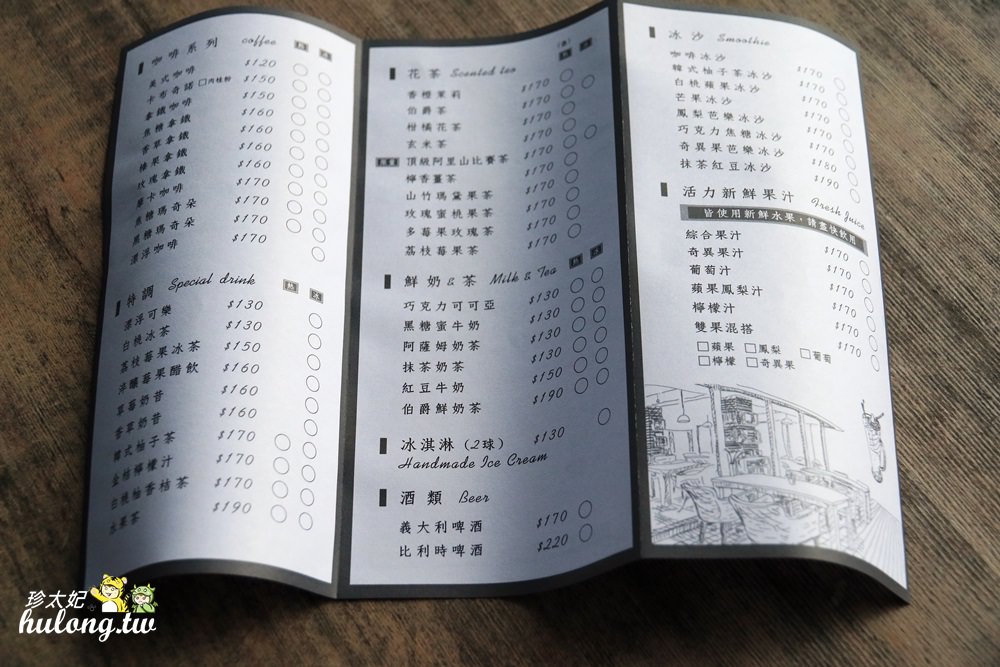 咖啡系列 coffee 熱 冰
美式咖啡 $120
卡布奇諾 □肉桂粉 $150
拿鐵咖啡 $150
焦糖拿鐵 $160
香草拿鐵 $160
榛果拿鐵 $160
玫瑰拿鐵 $160
摩卡咖啡 $170
焦糖瑪奇朵 $170
黑糖瑪奇朵 $170
漂浮咖啡 $170
特調 Special drink 熱 冰
漂浮可樂 $130
白桃冰茶 $130
荔枝莓果冰茶 $150
洋釀莓果醋飲 $160
草莓奶昔 $160
香草奶昔 $160
韓式柚子茶 $170
金桔檸檬汁 $170
白桃柚香桔茶 $170
水果茶 $190
花茶 Scented tea (壺) 熱 冰
香橙茉莉 $170
伯爵茶 $170
柑橘花茶 $170
玄米茶 $170
頂級阿里山比賽茶 $170
檸香薑茶 $170
山竹瑪黛果茶 $170
玫瑰蜜桃果茶 $170
多莓果玫瑰茶 $170
荔枝莓果茶 $170
鮮奶&茶 Milk & Tea 熱 冰
巧克力可可亞 $130
黑糖蜜牛奶 $130
阿薩姆奶茶 $130
抹茶奶茶 $130
紅豆牛奶 $150
伯爵鮮奶茶 $190
冰淇淋(2球) $130
Handmade Ice Cream
酒類 Beer
義大利啤酒 $170
比利時啤酒 $220
冰沙 Smoothie
咖啡冰沙 $170
韓式柚子茶冰沙 $170
白桃蘋果冰沙 $170
芒果冰沙 $170
鳳梨芭樂冰沙 $170
巧克力焦糖冰沙 $170
奇異果芭樂冰沙 $180
抹茶紅豆冰沙 $190
活力新鮮果汁 Fresh Juice
皆使用新鮮水果,請盡快飲用
綜合果汁 $170
奇異果汁 $170
葡萄汁 $170
蘋果鳳梨汁 $170
檸檬汁 $170
雙果混搭 $170
□蘋果 □鳳梨 □葡萄
□檸檬 □奇異果
珍太妃
hulong.tw